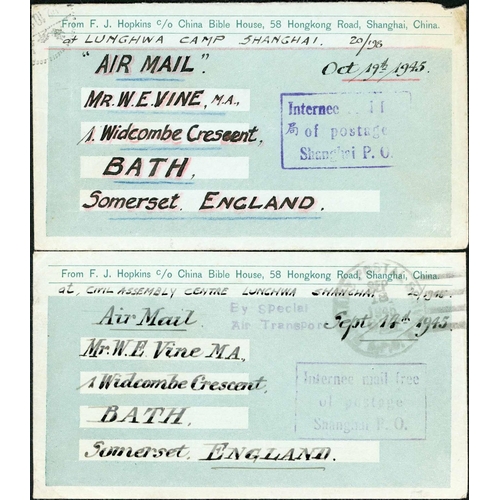 From F. J. Hopkins c/o China Bible House, 58 Hongkong Road, Shanghai, China.
at LUNGHWA CAMP SHANGHAI. 20/198
"AIR MAIL".
Oct 19th 1945.
MR. W. E. VINE, M.A.,
1. Widcombe Crescent,
BATH,
Somerset. ENGLAND.
Internee
局 of postage
Shanghai P. O.
From F. J. Hopkins c/o China Bible House, 58 Hongkong Road, Shanghai, China.
at, CIVIL ASSEMBLY CENTRE LUNGHWA SHANGHAI
By Special
Air Transport
Air Mail
Sept. 14th 1945
Mr. W. E. Vine M.A,
1 Widcombe Crescent,
BATH,
Somerset, ENGLAND.
Internee mail free
of postage
Shanghai P. O.